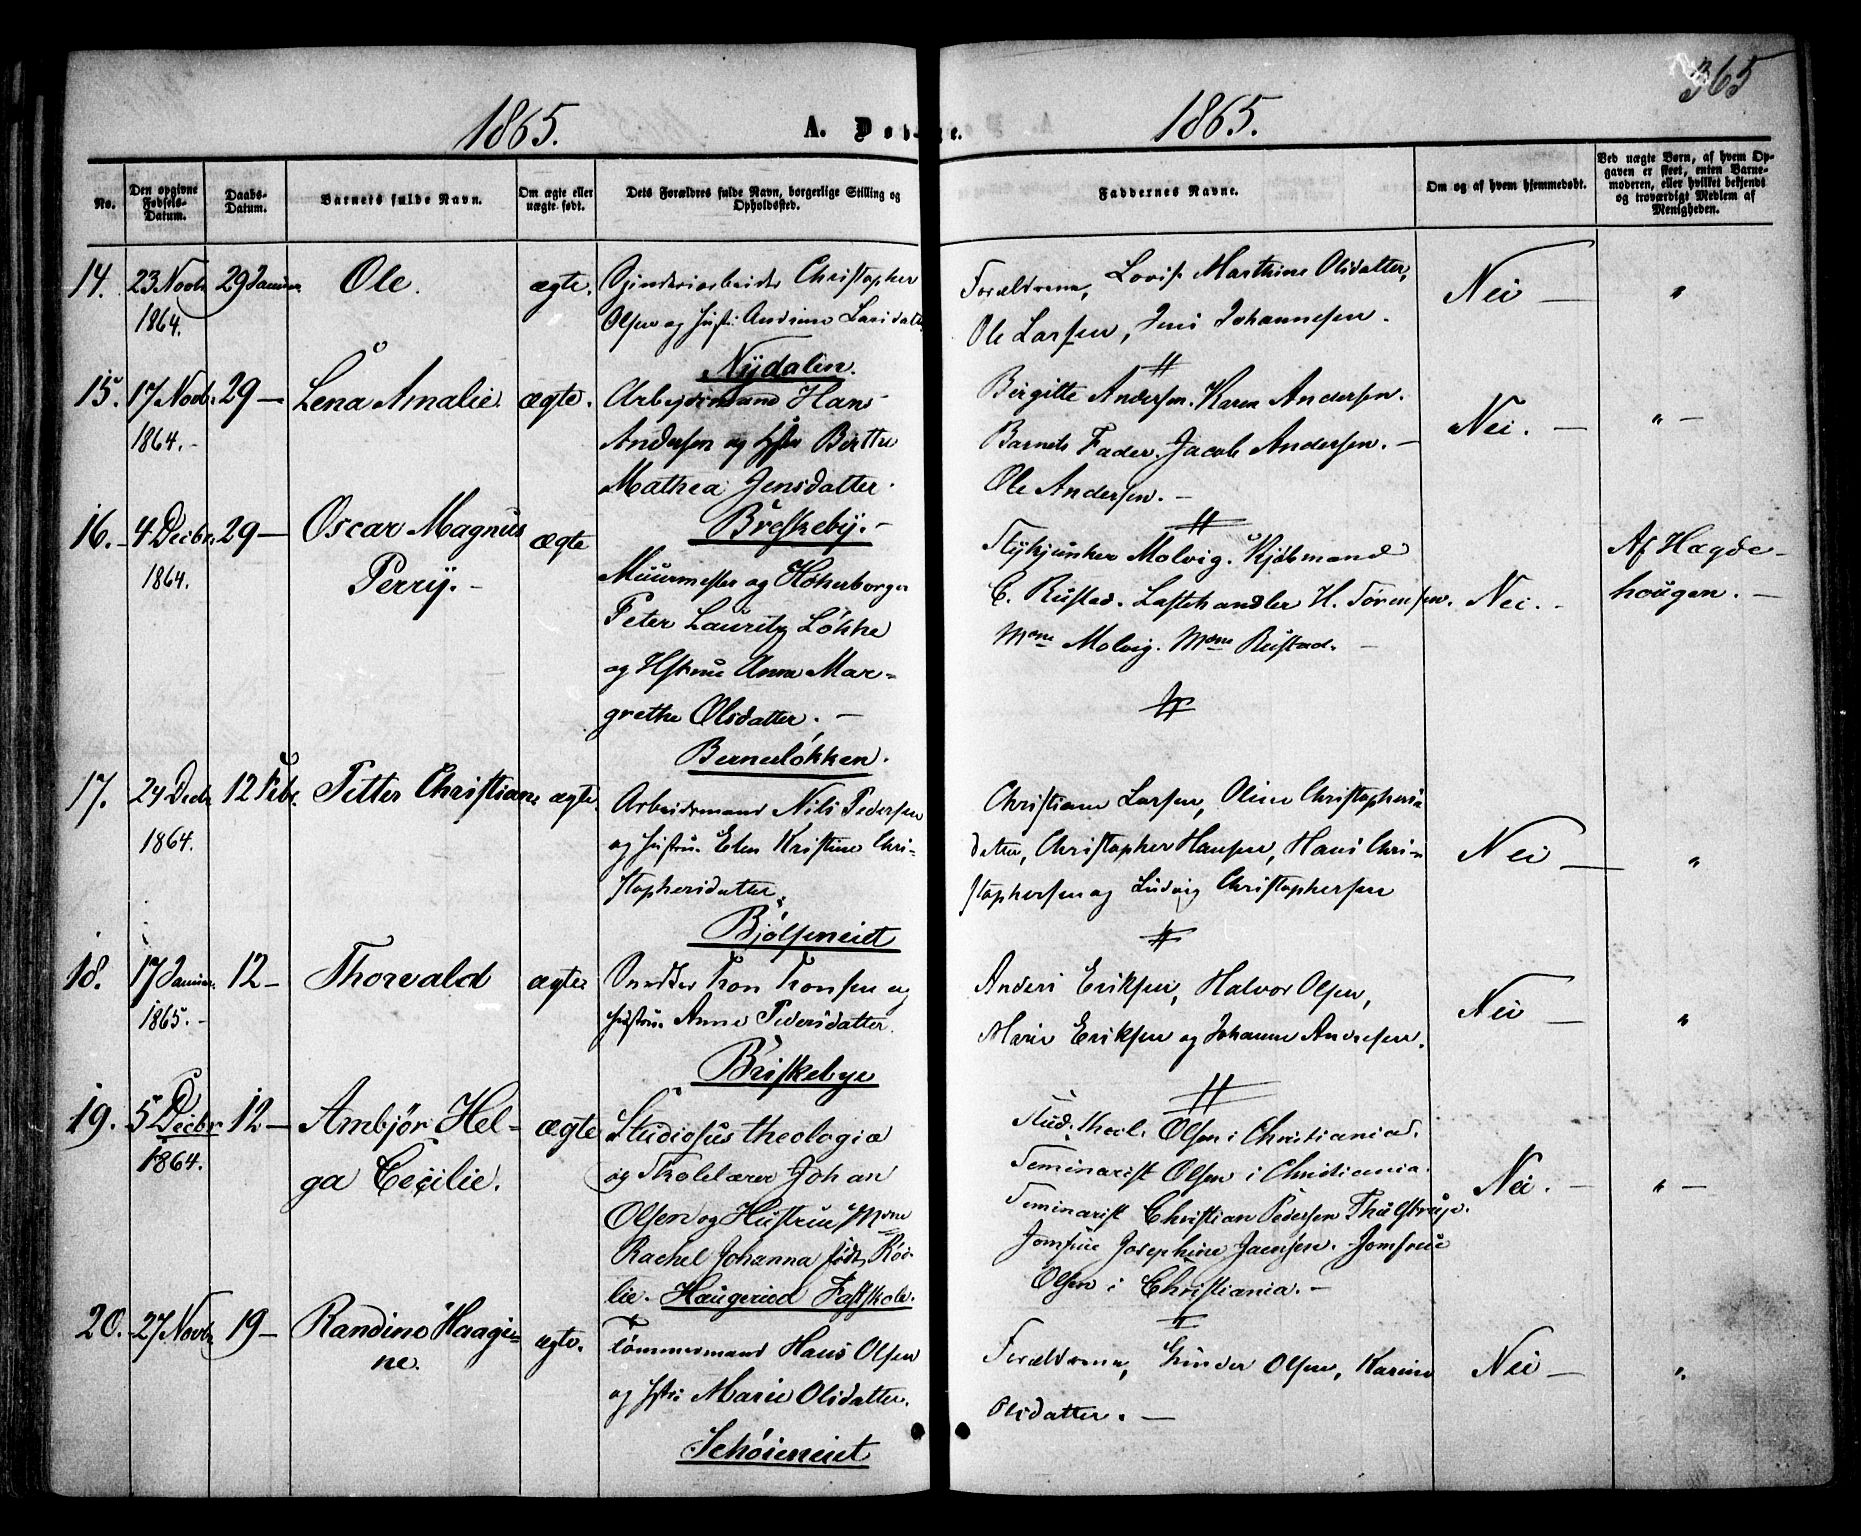 365
1865.
A. Døb
te.
1865.
No.
Den opgivne Fødsels-Datum.
Daabs-Datum.
Barnets fulde Navn.
Om ægte eller uægte født.
Dets Forældres fulde Navn, borgerlige Stilling og Opholdssted.
Faddernes Navne.
Om og af hvem hjemmedøbt.
Ved uægte Børn, af hvem Opgaven er skeet, enten Barnemoderen, eller hvilket bekjendt og troværdigt Medlem af Menigheden.
14. 23 Novbr 1864. 29 Januar Ole. ægte.
Spinderiarbeider Christopher
Olsen og Hustr: Andrine Larsdatter
Nÿdalen.
Forældrene, Lovise Marthine Olsdatter,
Ole Larsen, Jens Johannesen.
Nei — "
15. 17 Novbr. 1864. - 29 — Lena Amalie. ægte.
Arbeidsmand Hans
Andersen og Hstru Birthe
Mathea Jensdatter.
Breskebÿ. -
Birgitte Andersen. Karen Andersen.
Barnets Fader. Jacob Andersen. -
Ole Andersen. -
Nei. — " -
16. - 4 Decbr. 1864. 29 — Oscar Magnus
Perrÿ. - ægte
Muurmester og Høkerborger
Peter Lauritz Løkke
og Hstrue Anna Mar-
grethe Olsdatter. —
Bernerløkken.
Stÿkjunker Molvig. Kjøbmand
C. Rustad. Lastehandler H. Sørensen.
Mme Molvig. Mme Rustad. -
Nei. -
Af Hægde-
hougen. -
17. 24 Decbr 1864. 12 Febr. Petter Christian. ægte.
Arbeidsmand Nils Pedersen
og Hustru Elen Kristine Chri-
stophersdatter.
Bjølseneiet
Christiane Larsen, Oline Christophers-
datter, Christopher Hansen, Hans Chri-
stophersen og Ludvig Christophersen
Nei — "
18. 17 Januar. 1865. - 12 - Thorvald ægte
Tron Tronsen og
Hustru Anne Pedersdatter.
Briskebye
Anders Eriksen, Halvor Olsen,
Marie Eriksen og Johanne Andresen.
Nei — "
19. 5 Decbr 1864. 12 — Ambjør Hel-
ga Cecilie. ægte
Studiosus theologiæ
og Skolelærer Johan
Olsen og Hustrue Mme
Rachel Johanna født Røs-
lie. Haugeruds Fastskole.
Stud. theol. Olsen i Christiania.
Seminarist Olsen i Christiania.
Seminarist Christian Pedersen Thulstrup.
Jomfrue Josephine Jansen. Jomfrue
Olsen i Christiania. -
Nei. - " -
20. 27 Novbr 19 — Randine Haagi-
ne. ægte.
Tømmermand Hans Olsen
og Hstr: Marie Olsdatter.
Schøieneiet
Forældrene, Gunder Olsen, Karine
Olsdatter. —
Nei — "